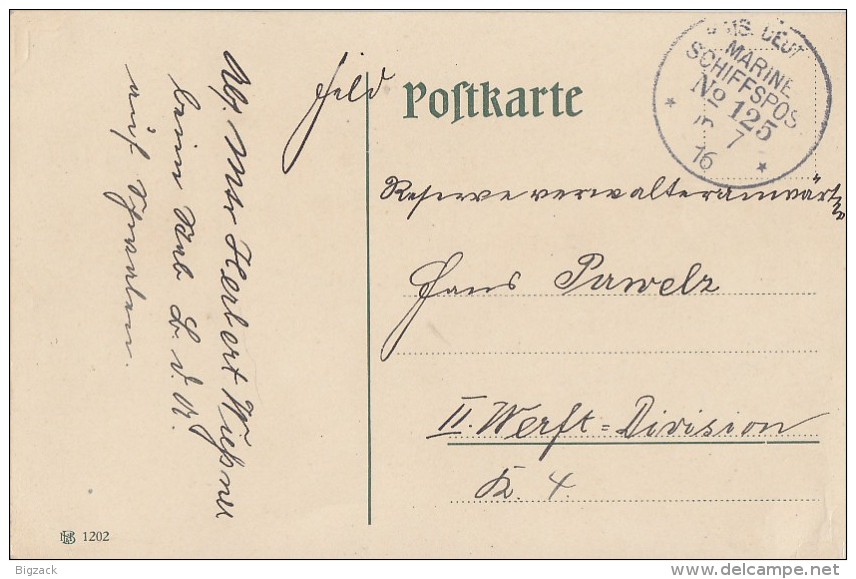 Feld Postkarte
KAIS. DEUT
MARINE
SCHIFFSPOS
No 125
7
16
Reserveverwalteranwärter
Hans Pawelz
II. Werft=Division
K. 4.
Abs. Mtr Herbert Wießner
beim Stab
auf
1202
Bigzack
delcampe.net